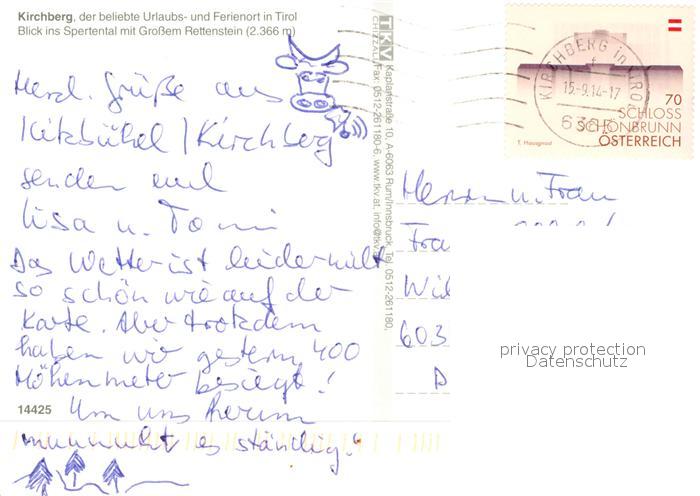 Kirchberg, der beliebte Urlaubs- und Ferienort in Tirol
Blick ins Spertental mit Großem Rettenstein (2.366 m)
Herzl. Grüße aus
Kitzbühel / Kirchberg
senden euch
Lisa u. Tomi
Das Wetter ist leider nicht
so schön wie auf der
Karte. Aber trotzdem
haben wir gestern 400
Höhenmeter besiegt!
Um uns herum
"muuuht es ständig."
14425
TKV
CHIZZALI
Kaplanstraße 10, A-6063 Rum/Innsbruck, Tel. 0512-261180,
Fax: 0512-261180-6, www.tkv.at, info@tkv.
KIRCHBERG in TIROL
15.-9.14-17
6365
70
SCHLOSS
SCHÖNBRUNN
ÖSTERREICH
T. Hausgnad
Herrn u. Frau
Fra
Wil
603
D
privacy protection
Datenschutz